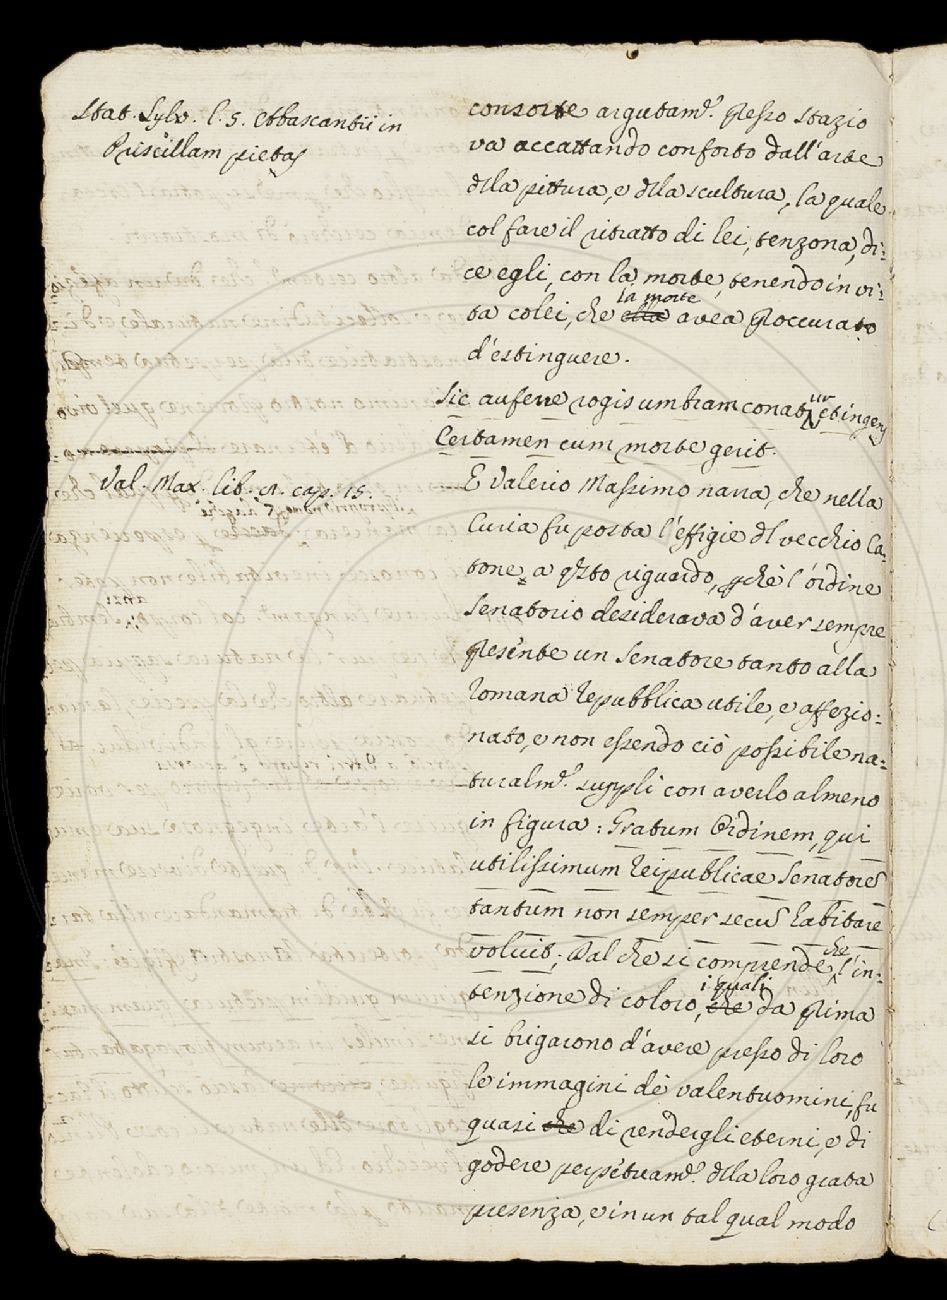 Stat. Sylv. l. 5. Abbascantii in
Priscillam pietas
consorte argutam.e presso Stazio
va accattando conforto dall'arte
dlla pittura, e dlla scultura, la quale
col fare il ritratto di lei, tenzona, di:
ce egli, con la morte, tenendo in vi:
la morte
ta colei, che ella avea proccurato
d'estinguere.
Sic auferre rogis umbram conatur et ingens
Certamen cum morte gerit.
Val. Max. lib. 8. cap. 15.
E Valerio Massimo narra, che nella
Curia fu posta l'effigie dl vecchio Ca:
tone a qsto riguardo, pchè l'ordine
Senatorio desiderava d'aver sempre
presente un Senatore tanto alla
Romana Repubblica utile, e affezio:
nato, e non essendo ciò possibile na:
turalm.e supplì con averlo almeno
in figura: Gratum Ordinem, qui
utilissimum Reipublicae Senatorem
tantum non semper secum habitare
voluit. Dal che si comprende, che l'in:
i quali
tenzione di coloro, che da prima
si brigarono d'avere presso di loro
le immagini de' valentuomini, fu
quasi che di rendergli eterni, e di
godere perpetuam.e dlla loro grata
presenza, e in un tal qual modo